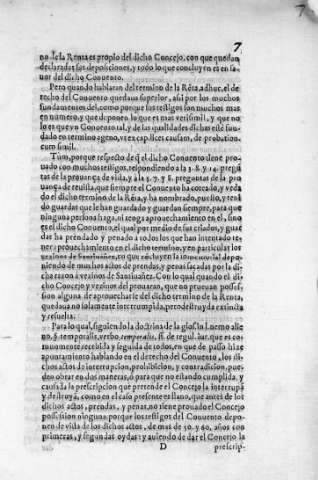 7
7
no de la Renta es propio del dicho Concejo, con que quedan
declaradas sus deposiciones, y todo lo que concluyen es en fa-
uor del dicho Conuento.
Pero quando hablaran del termino de la Rẽta, adhuc, el de
recho del Conuento quedaua superior, assi por los muchos
fundamentos del, como porque sus testigos son muchos mas
en numero, y que deponen lo que es mas verisimil, y que no
lo es que vn Conuento tal, y de las qualidades deste esté fun-
dado en termino ageno, vt ex capit. ex causam, de probation.
cum simil.
Tùm, porque respecto de q̃ el dicho Conuento tiene pro-
uado con muchos testigos, respondiendo a la 3. 8. y 14. pregũ
tas de la prouança de vista, y a la 5. 7. y 8. preguntas de la pro
uança de reuista, que siempre el Conuento ha cotedo, y veda
do el dicho termino de la Rẽta, y ha nombrado, puesto, y teni
do guardas que le han guardado y guardan siempre, para que
ninguna persona haga, ni tenga aprouechamiento en el, sino
es el dicho Conuento, el qual por medio de sus criados, y guar
das ha prendado y penado a todos los que han intentado te-
ner aprouechamiento en el dicho termino, y en particular los
vezinos de Santiuañez, en que concluyen la inmemorial de po-
niendo de muchos actos de prendas, y penas sacadas por la di-
cha razon a vezinos de Santiuañez. Con lo qual quando el di
cho Concejo y vezinos del prouaran, que no prueuan posses-
sion alguna de aprouecharse del dicho termino de la Renta,
quedaua no solamente interrumpida, pero destruyda extincta
y resuelta:
Para lo qual, siguiendo la doctrina de la glos. in l. nemo alie
no, §. temporalis, verbo temporalis, ff. de regul. iur. que es co-
munmente recebida y seguida de todos, en que de passo hize
apuntamiento hablando en el derecho del Conuento, los di-
chos actos de interrupcion, prohibicion, y contradicion, pue-
den obrar en dos maneras, ò para que no estando cumplida, y
causada la prescripcion que pretende el Concejo la interrupa
y destruyá, como en el caso presente es llano, que antes de los
dichos actos, prendas, y penas, no tiene prouado el Concejo
possession ninguna, porque los testigos del Conuento depo-
nen de vista de los dichos actos, de mas de 50. y 60. años con
primeras, y segundas oydas: y auiendo de dar el Concejo la
D prescrip-